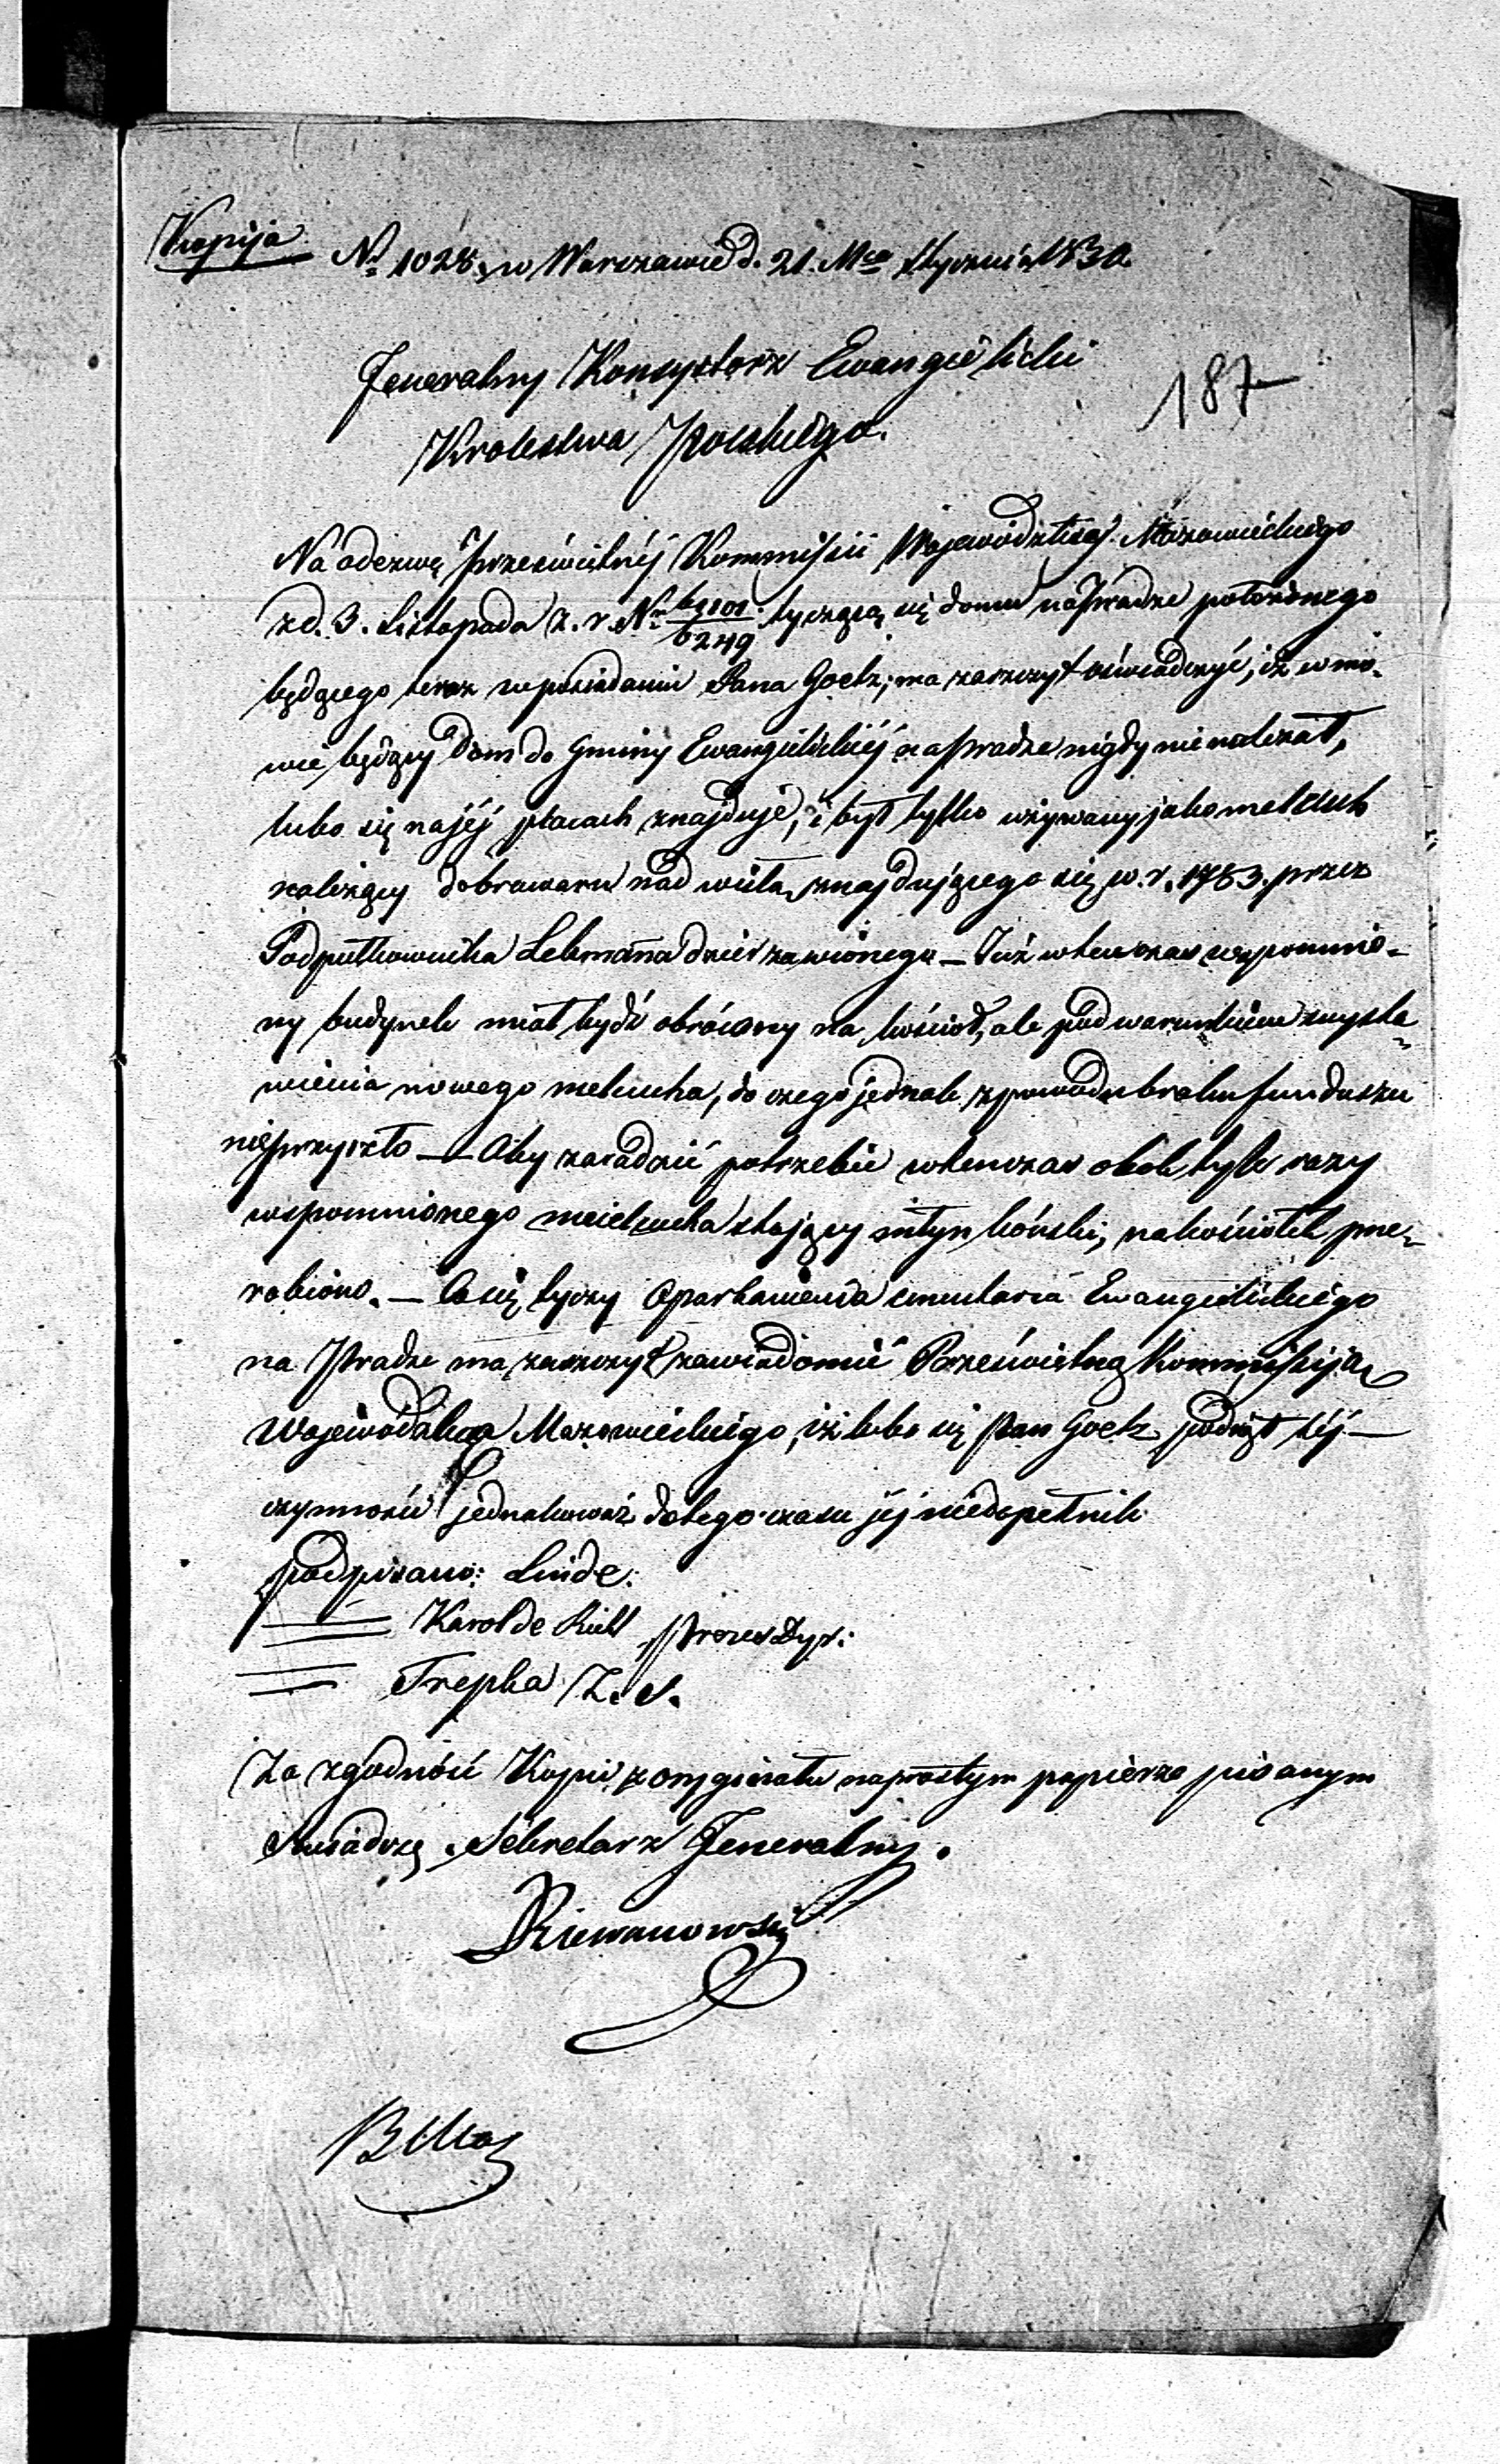 Kopija
Nº 1028, w Warszawie d. 21. Mca Stycznia 1830.
Jeneralny Konsystorz Ewangielicki
187
Krolestwa Polskiego.
Na odezwę Prześwietnéj Kommissii Województwa Mazowieckiego
z d. 3. Listopada z. r. Nr 6249 tyczącą się domu na Pradze położonego
będącego teraz w posiadaniu Pana Goetz; ma zaszczyt oświadczyć, iż w mo-
wie będący dom do Gminy Ewangielickiéj na Pradze nigdy nie należał,
lubo się na jéj placach znajduje, i był tylko używany jako melcuch
należący do browaru nad wisłą znajdującego się, w r. 1783. przez
Podpułkownika Lehmanna dzierżawionego — Już wtenczas wspomnio-
ny budynek miał bydź obrócony na kościoł, ale pod warunkiem wysta-
wienia nowego melcucha, do czego jednak z powodu braku funduszu
nieprzyszło — Aby zaradzić potrzebie wtenczas obok tyle razy
wspomnionego mielcucha stojący młyn koński, na kościołek prze-
robiono. — Co się tyczy Oparkanienia cmentarza Ewangielickiego
na Pradze ma zaszczyt zawiadomić Prześwietną Kommissiją
Województwa Mazowieckiego, iż lubo się Pan Goetz podjął téj —
czynności jednakowoż do tego czasu jéj niedopełnił.
podpisano: Linde.
Karol de Prezes Dyr:
Trepka Z. S.
Za zgodność Kopii z oryginału na prostym papierze pisanym
Świadczę. Sekretarz Jeneralny.